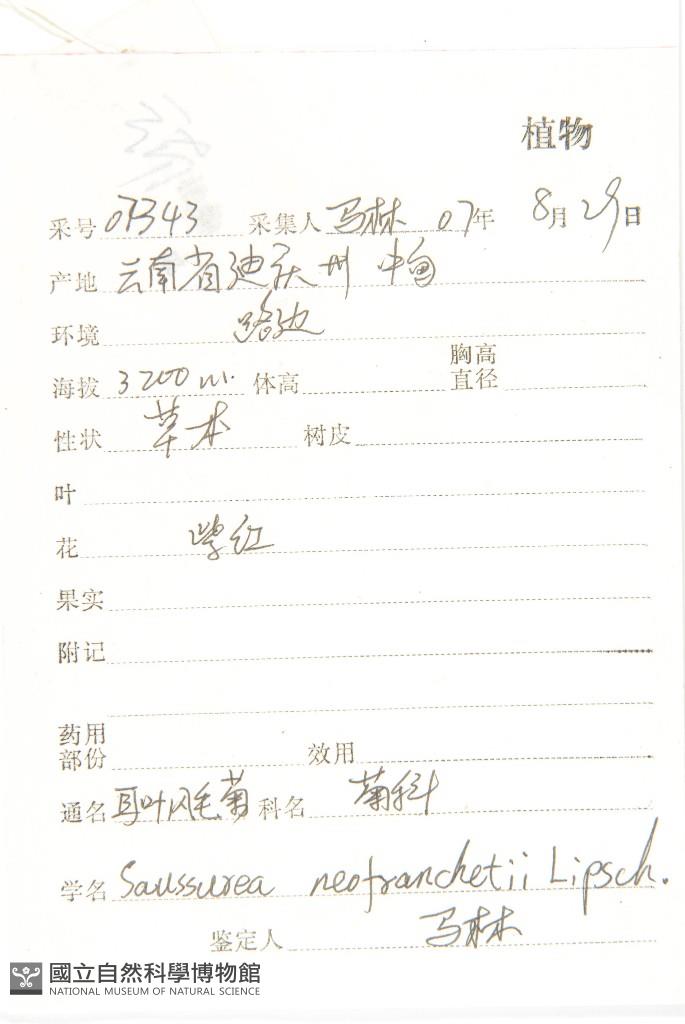 植物
采号 07343 采集人 马林 07年 8月29日
产地 云南省迪庆州 中甸
环境 路边
海拨 3200m. 体高 胸高直径
性状 草本 树皮
叶
花 紫红
果实
附记
药用部份 效用
通名 耳叶风毛菊 科名 菊科
学名 Saussurea neofranchetii Lipsch.
鉴定人 马林
國立自然科學博物館
NATIONAL MUSEUM OF NATURAL SCIENCE